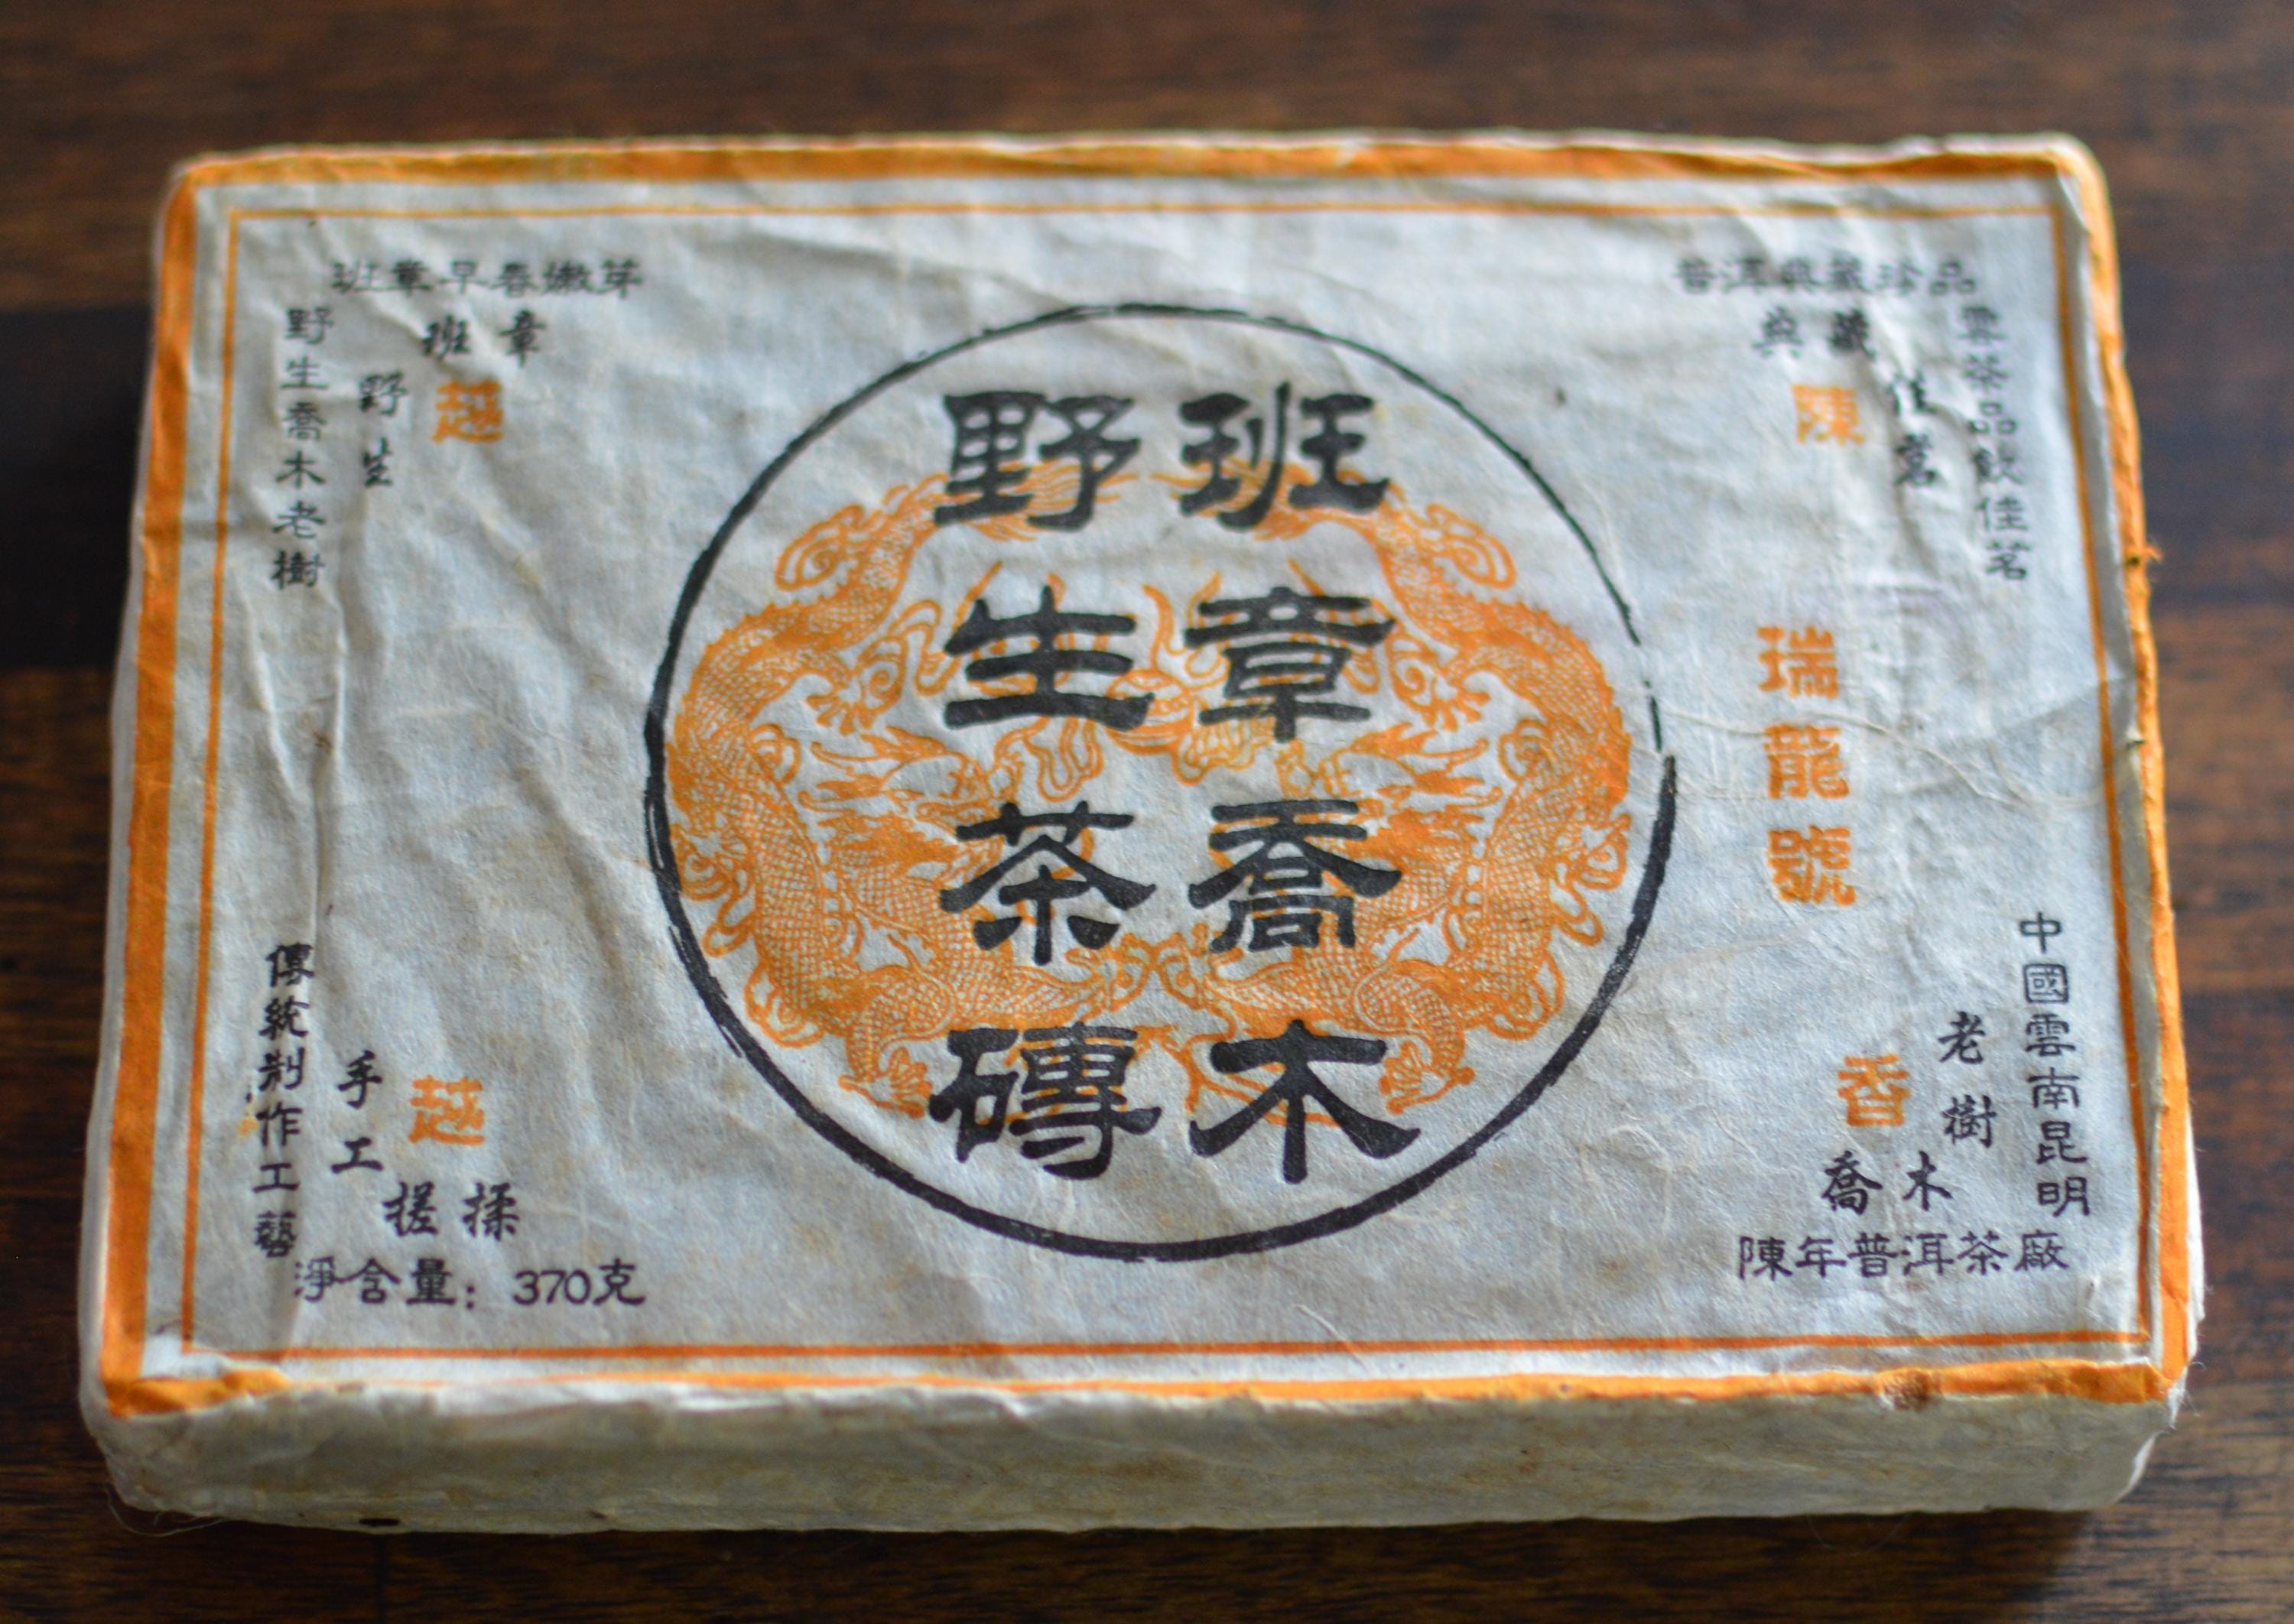 班章喬木
野生茶磚
班章早春嫩芽
野生喬木老樹
班章
野生
越
普洱典藏珍品
雲茶品飲佳茗
典藏
佳茗
陳
瑞龍號
傳統制作工藝
手工
搓揉
越
淨含量：370克
中國雲南昆明
老樹
喬木
香
陳年普洱茶廠